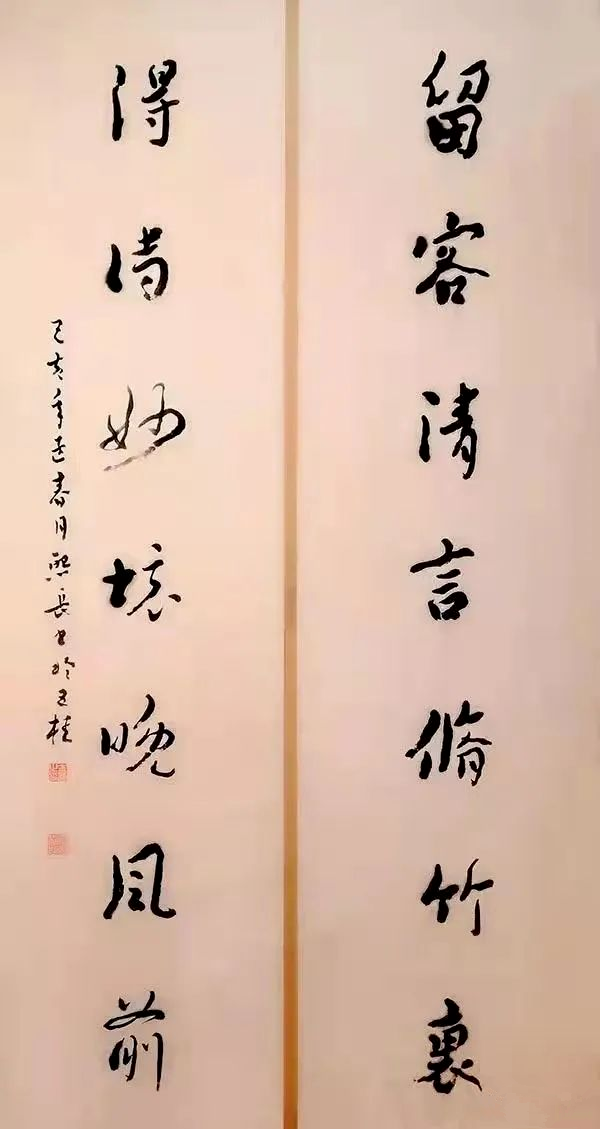 留客清言脩竹裏
得詩妙境晚風前
己亥年建春月熙長書於五桂